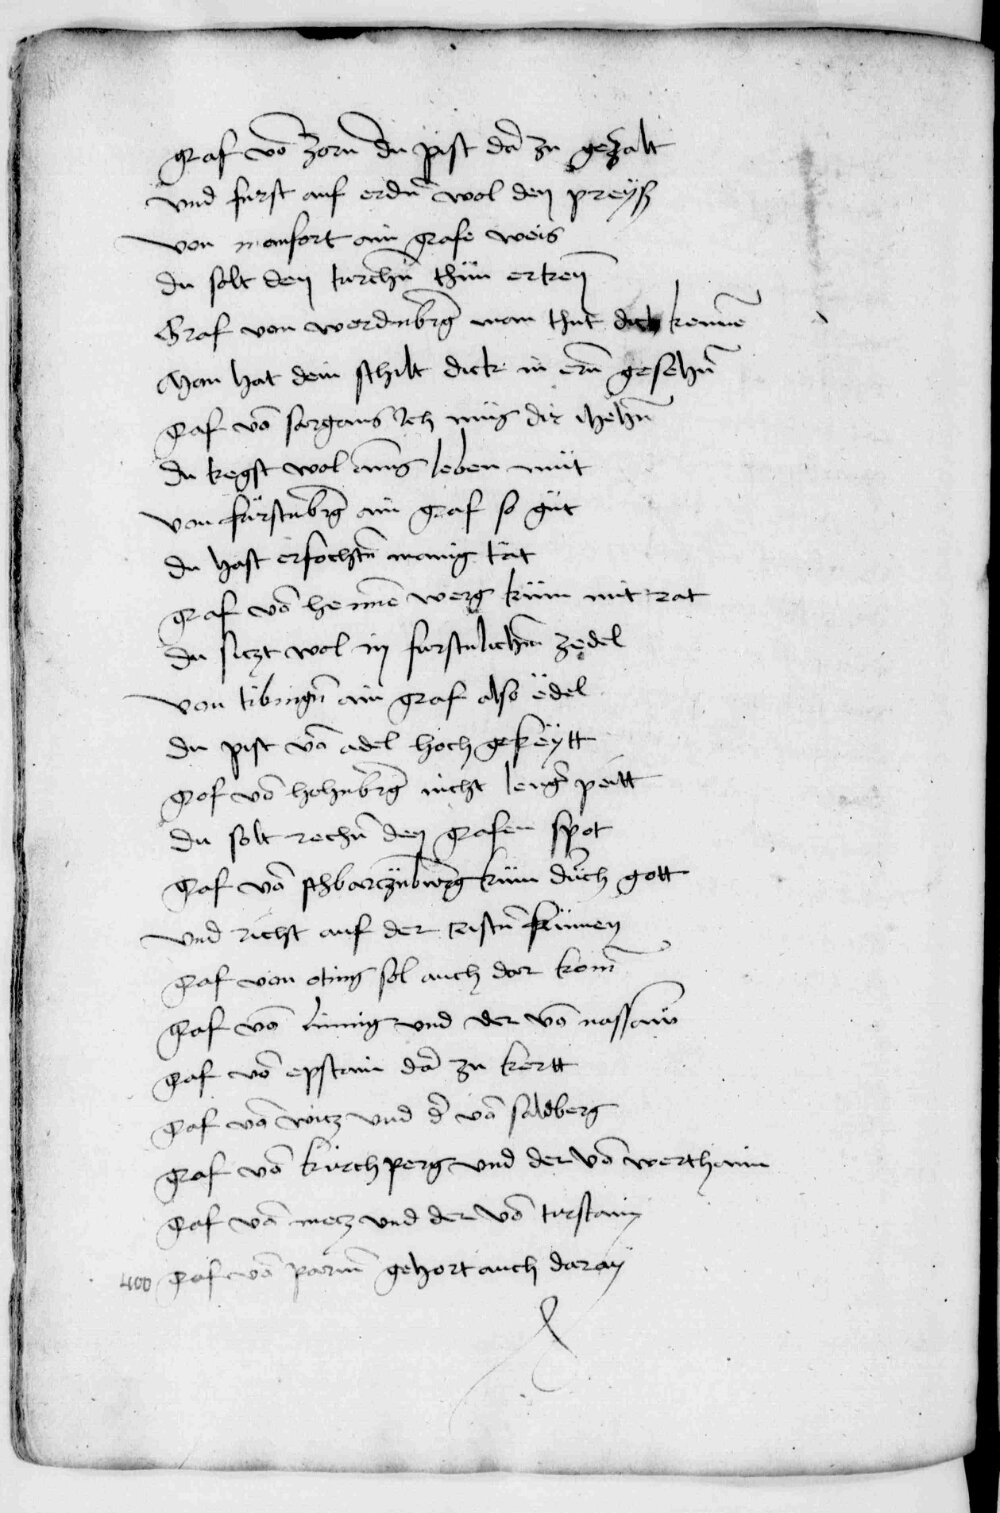 graf vō zorn du pist dā zu gezalt
vnd furst auf erdn̄ wol den preyß
von monfort ain grafe weis
du solt den turchn̄ thün ertren̄
Graf von werdnbrḡ man thut dich kennē
Man hat dein schilt dick in ern̄ gesehn̄
graf vō sargans Ich müs dir jhehn̄
du tregst wol leben müt
von fürstnbrḡ ain graf so güt
du hast erfochtn̄ manig tät
graf vō werg küm mit rat
du siczt wol in furstnlichm̄ zedel
von tibingn̄ ain graf also ëdel
du pist vō adel hoch gefreytt
graf vō hohnbrḡ nicht lenḡ peitt
du solt rechn̄ den grafen spot
graf vō schbarcznbürg küm dürch gott
vnd richt auf der cristn̄ frümen
graf von oting sol auch dar kom̄
graf vō linnig vnd der vō nassaw
graf vō epstain dā zu kertt
graf vō witz vnd d̄ vō salbberg
graf vō kürchperg vnd der vō werthaim
graf vō metz vnd der vō tirstain
400 graf vō parm̄ gehort auch daran